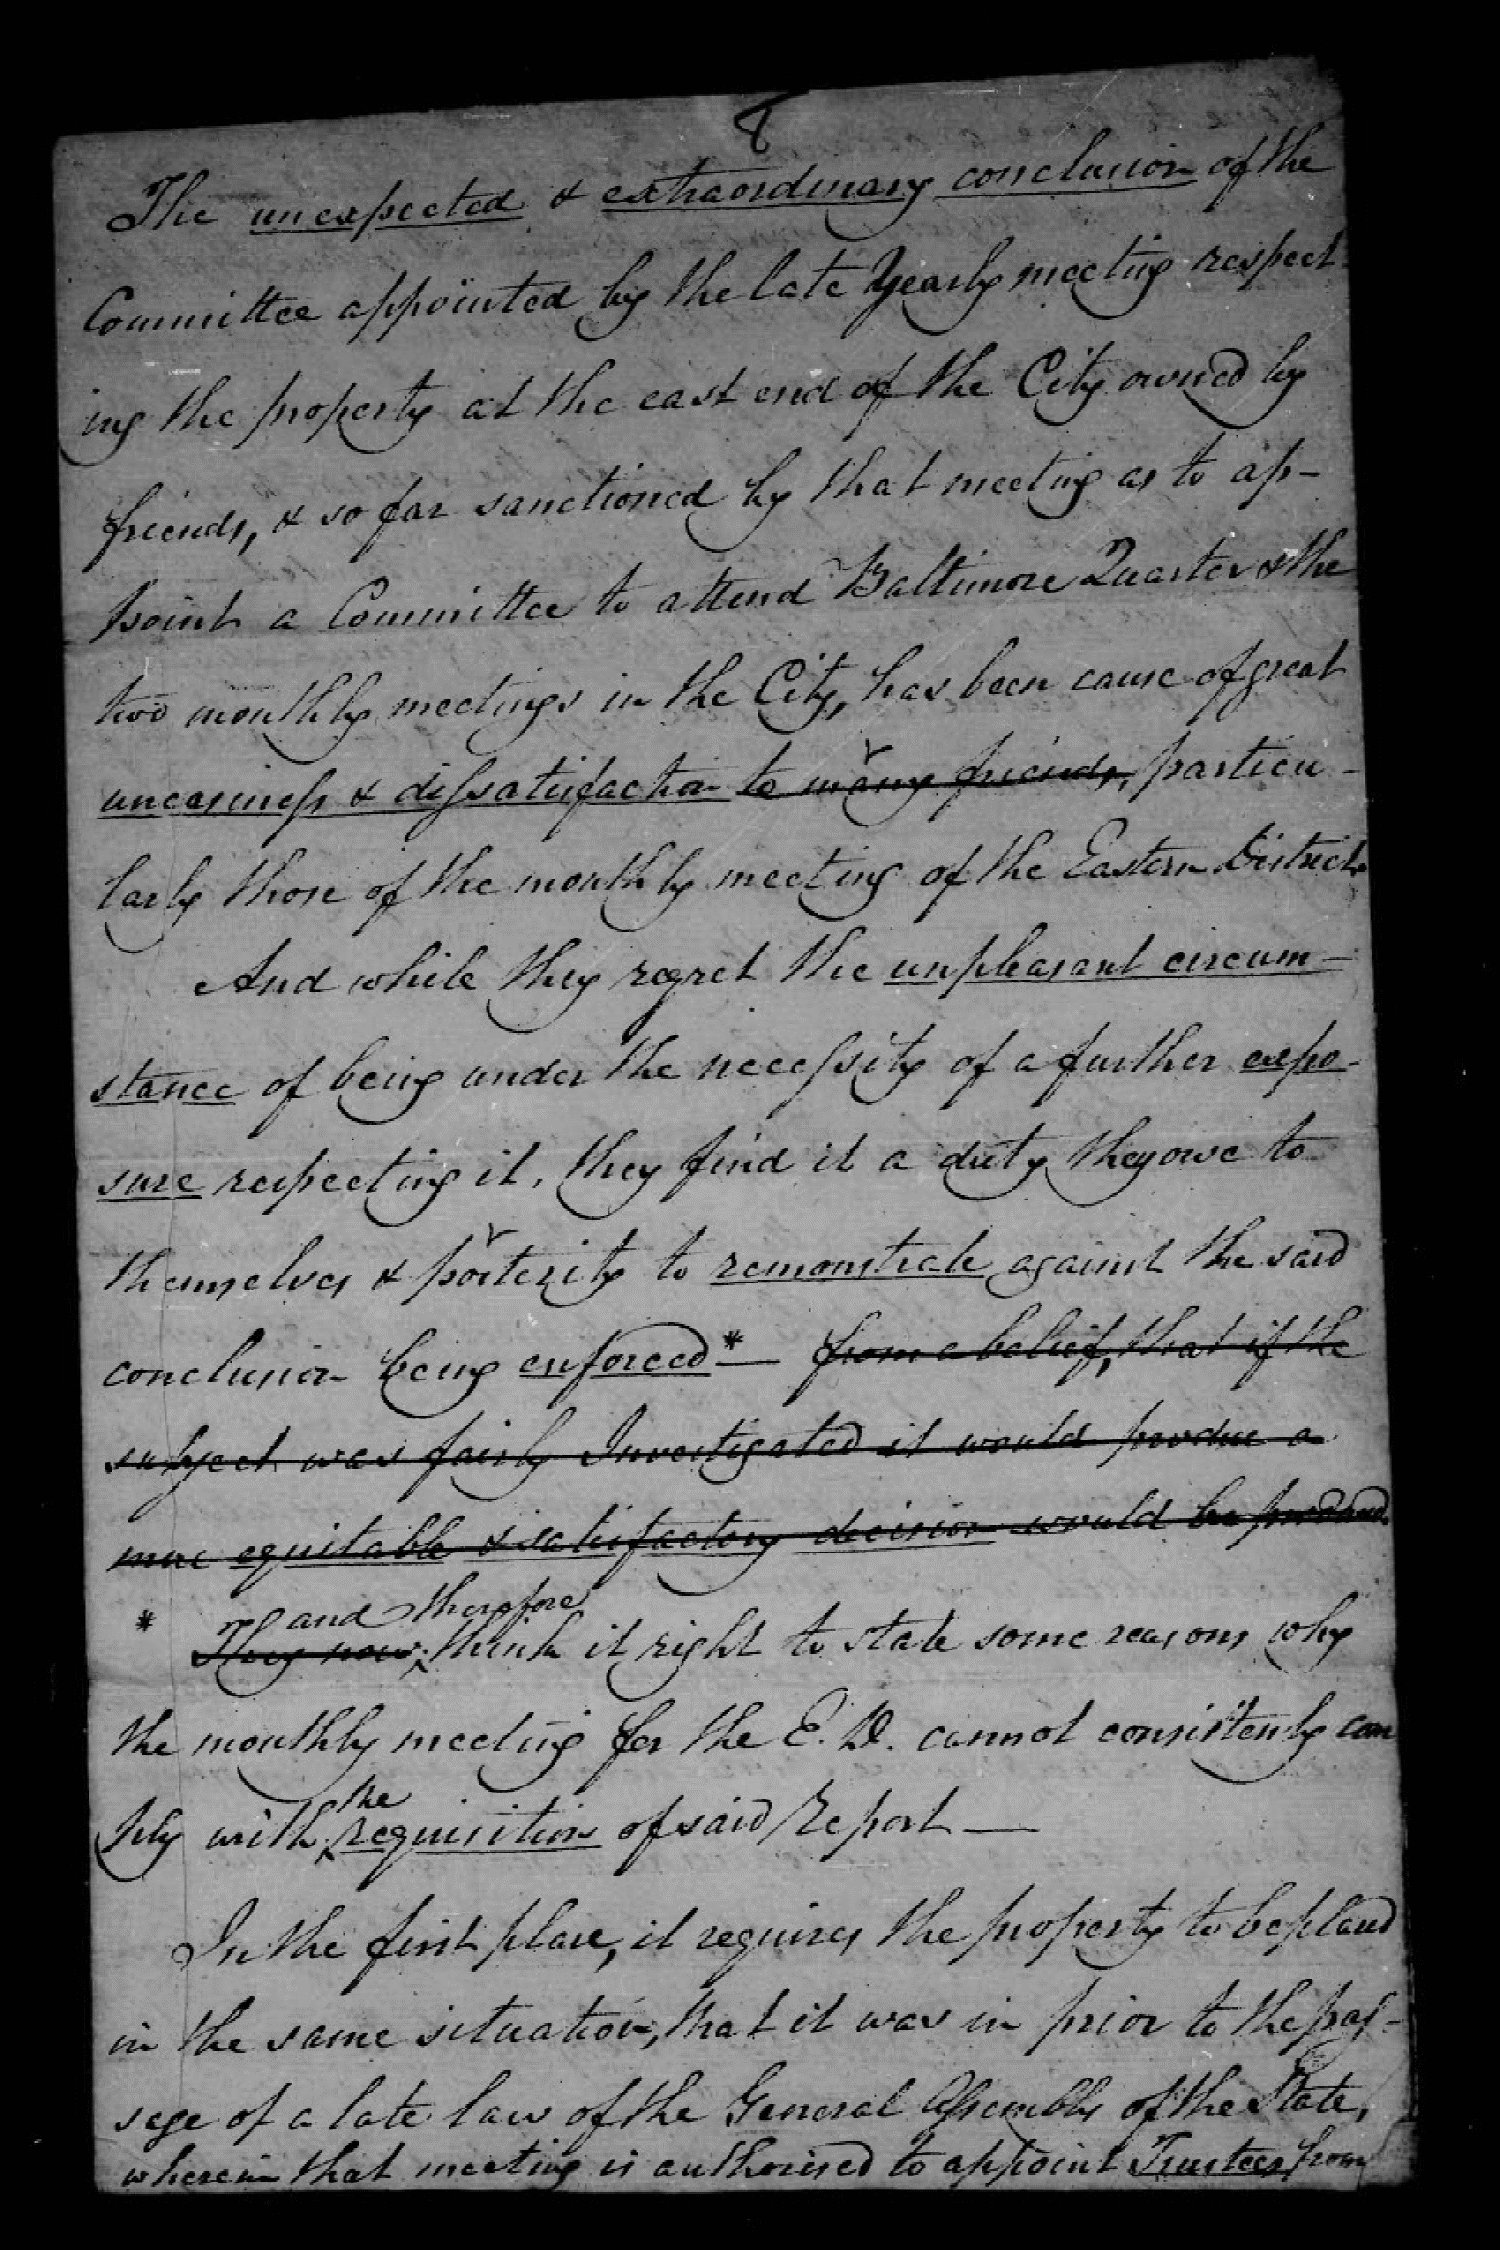 8
The unexpected & extraordinary conclusion of the
Committee appointed by the late Yearly meeting respect-
ing the property at the east end of the City owned by
friends, & so far sanctioned by that meeting as to ap-
point a Committee to attend Baltimore Quarter & the
two monthly meetings in the City, has been cause of great
uneasiness & dissatisfaction to many friends, particu-
larly those of the monthly meeting of the Eastern District.
And while they regret the unpleasant circum-
stance of being under the necessity of a further expo-
sure respecting it, they find it a duty they owe to
themselves & posterity to remonstrate against the said
conclusion being enforced * — from a belief, that if the
subject was fairly Investigated it would produce a
more equitable & satisfactory decision would be produced.
and therefore
* They now think it right to state some reasons why
the monthly meeting for the E. D. cannot consistently com
the
ply with requisition of said Report —
In the first place, it requires the property to be placed
in the same situation, that it was in prior to the pas-
sage of a late law of the General Assembly of the State,
wherein that meeting is authorised to appoint Trustees from